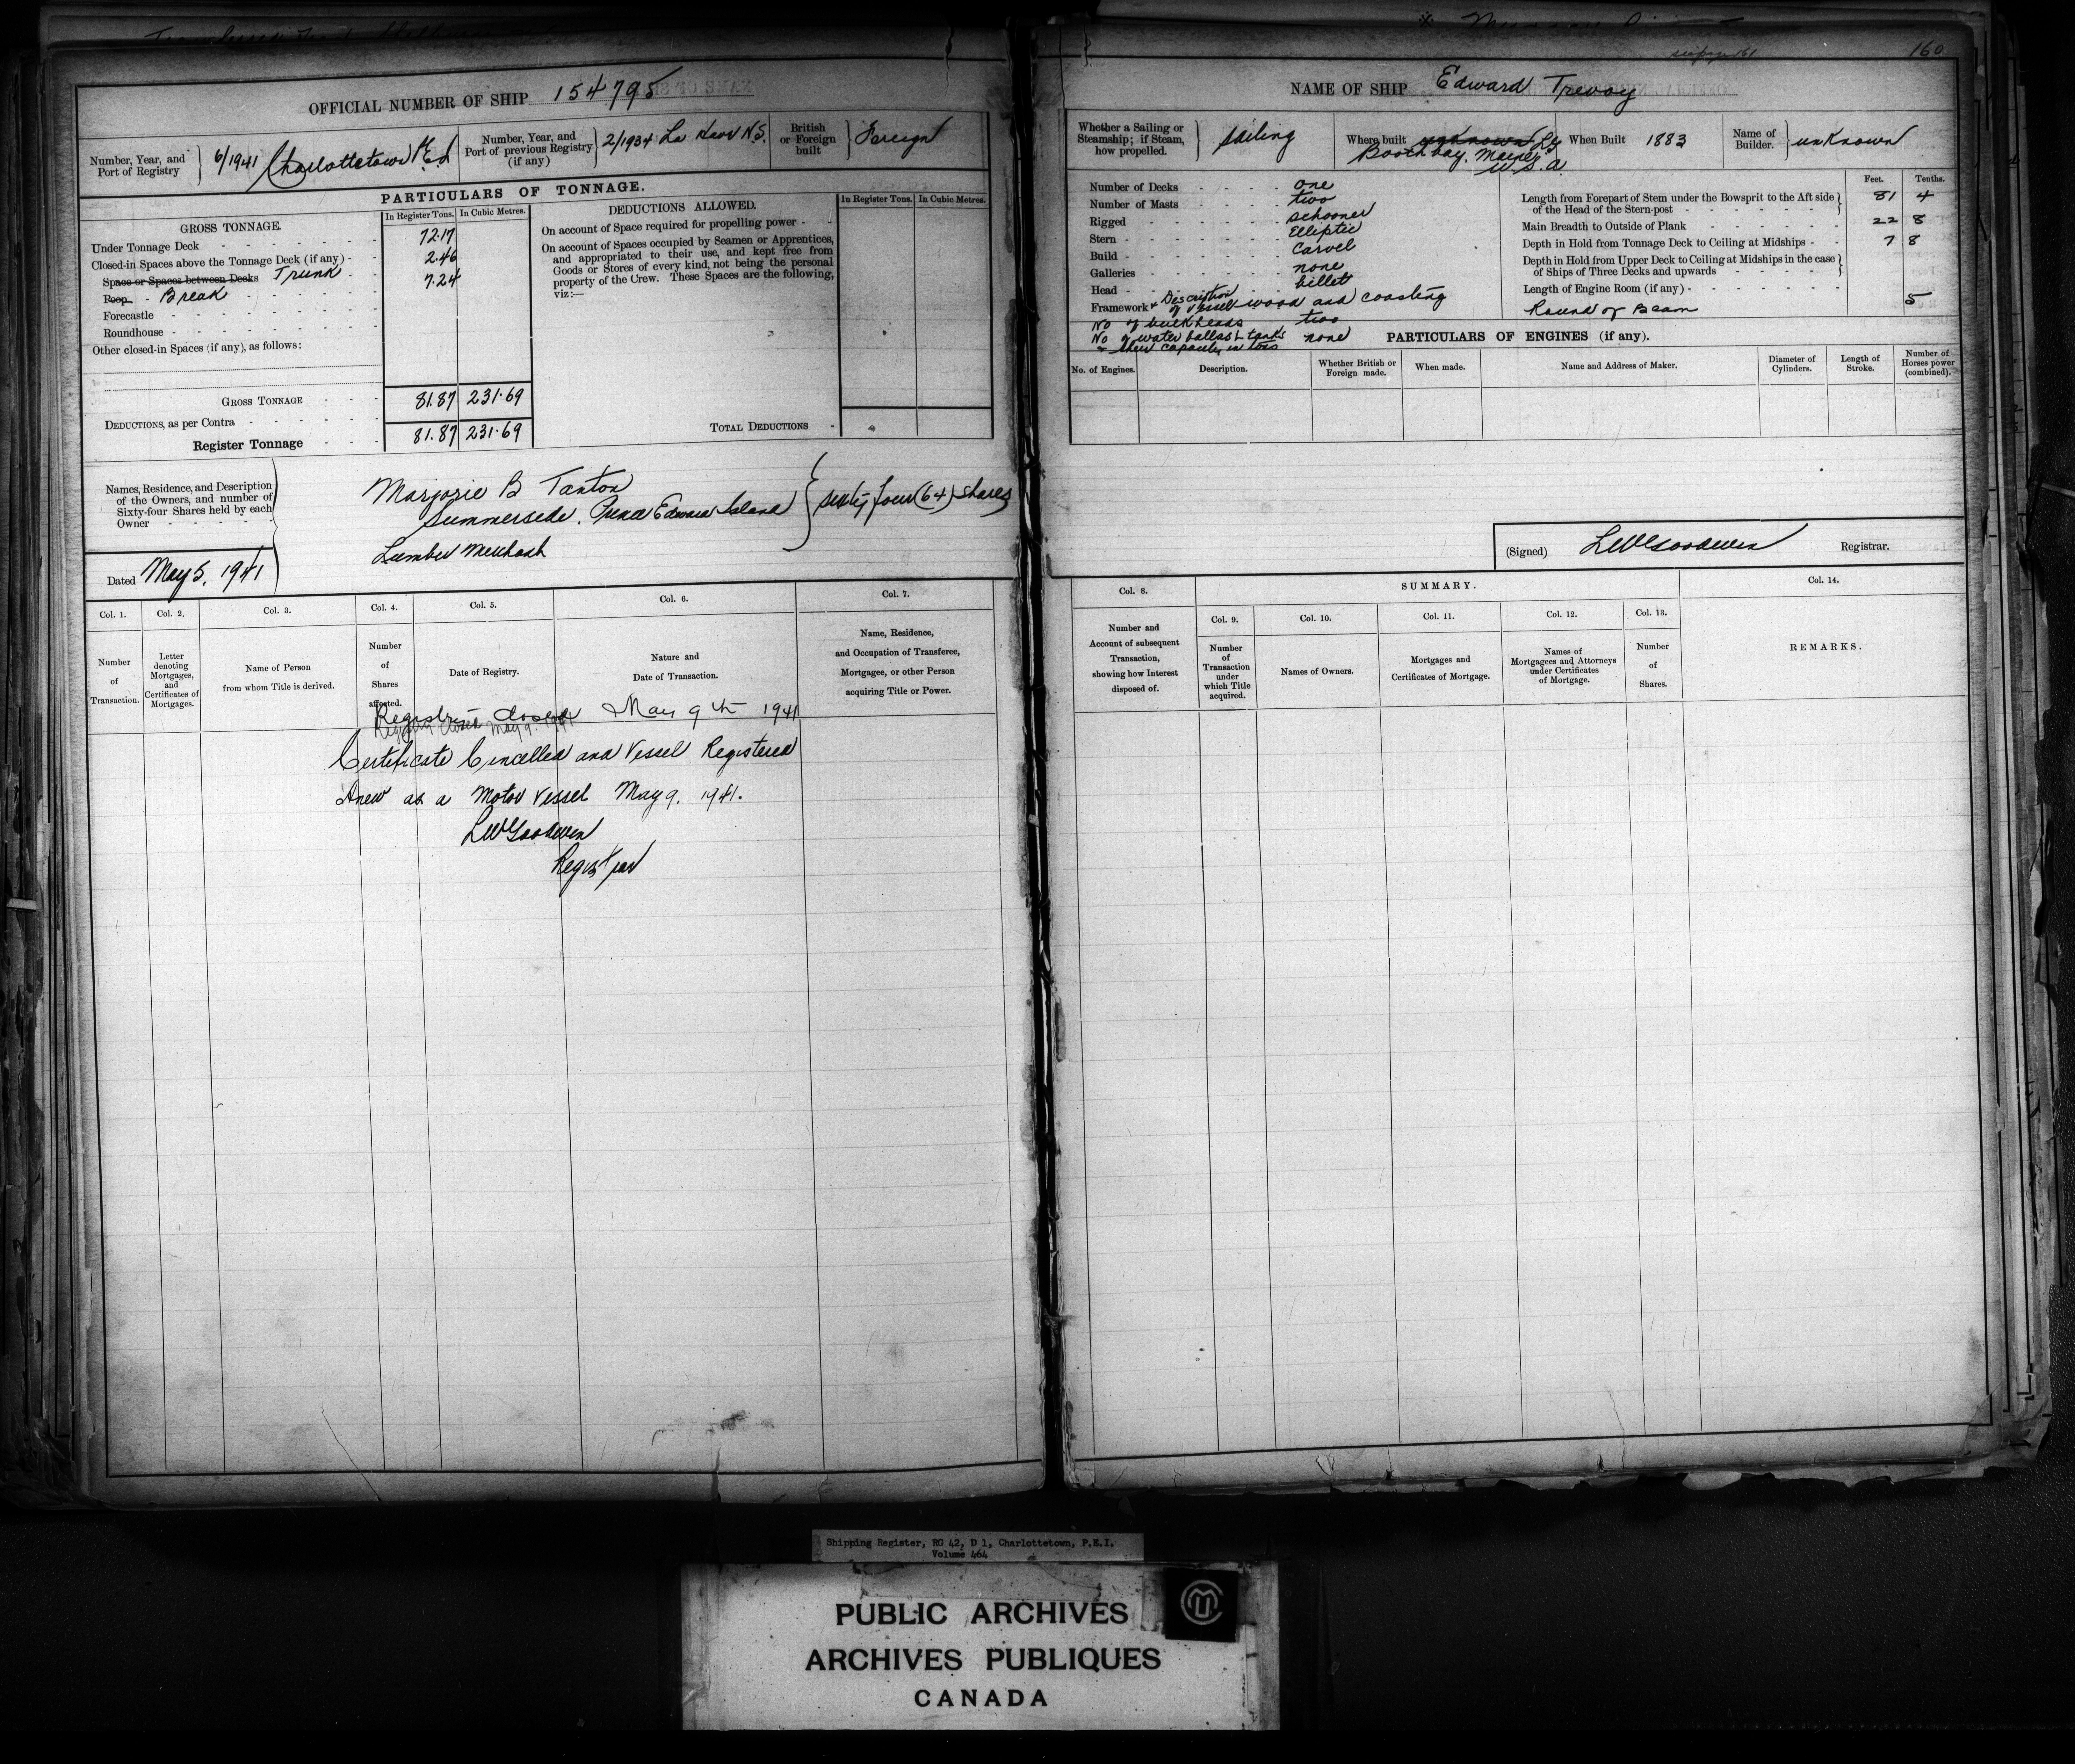 160
OFFICIAL NUMBER OF SHIP 154795
Number, Year, and Port of Registry 6/1941 Charlottetown P.E.I
Number, Year, and Port of previous Registry (if any) 2/1934 La Have N.S.
British or Foreign built Foreign
PARTICULARS OF TONNAGE.
GROSS TONNAGE.
In Register Tons. In Cubic Metres.
Under Tonnage Deck 72.17
Closed-in Spaces above the Tonnage Deck (if any) 2.46
Space or Spaces between Decks Trunk 7.24
Poop Break
Forecastle
Roundhouse
Other closed-in Spaces (if any), as follows:
GROSS TONNAGE 81.87 231.69
DEDUCTIONS, as per Contra
Register Tonnage 81.87 231.69
DEDUCTIONS ALLOWED.
In Register Tons. In Cubic Metres.
On account of Space required for propelling power
On account of Spaces occupied by Seamen or Apprentices,
and appropriated to their use, and kept free from
Goods or Stores of every kind, not being the personal
property of the Crew. These Spaces are the following,
viz:—
TOTAL DEDUCTIONS
Names, Residence, and Description
of the Owners, and number of
Sixty-four Shares held by each
Owner
Marjorie B Tanton
Summerside, Prince Edward Island
Lumber Merchant
sixty four (64) shares
Dated May 5, 1941
Col. 1. Col. 2. Col. 3. Col. 4. Col. 5. Col. 6. Col. 7.
Number of Transaction.
Letter denoting Mortgages, and Certificates of Mortgages.
Name of Person from whom Title is derived.
Number of Shares affected.
Date of Registry.
Nature and Date of Transaction.
Name, Residence, and Occupation of Transferee, Mortgagee, or other Person acquiring Title or Power.
Registry closed May 9th 1941
Registry closed May 9. 1941
Certificate Cancelled and Vessel Registered
Anew as a Motor Vessel May 9. 1941.
LWGoodwin
Registrar
NAME OF SHIP Edward Trevoy
Whether a Sailing or Steamship; if Steam, how propelled. Sailing
Where built unknown
Boothbay, Maine
U.S.A.
When Built 1883
Name of Builder. unknown
Number of Decks one
Number of Masts two
Rigged schooner
Stern Elliptic
Build Carvel
Galleries none
Head billet
Framework & Description of vessel wood and coasting
No of bulkheads two
No of water ballast tanks & their capacity in tons none
Feet. Tenths.
Length from Forepart of Stem under the Bowsprit to the Aft side of the Head of the Stern-post 81 4
Main Breadth to Outside of Plank 22 8
Depth in Hold from Tonnage Deck to Ceiling at Midships 7 8
Depth in Hold from Upper Deck to Ceiling at Midships in the case of Ships of Three Decks and upwards
Length of Engine Room (if any)
Round of Beam 5
PARTICULARS OF ENGINES (if any).
No. of Engines. Description. Whether British or Foreign made. When made. Name and Address of Maker. Diameter of Cylinders. Length of Stroke. Number of Horses power (combined).
(Signed) LWGoodwin Registrar.
Col. 8. SUMMARY. Col. 14.
Col. 9. Col. 10. Col. 11. Col. 12. Col. 13.
Number and Account of subsequent Transaction, showing how Interest disposed of.
Number of Transaction under which Title acquired.
Names of Owners.
Mortgages and Certificates of Mortgage.
Names of Mortgagees and Attorneys under Certificates of Mortgage.
Number of Shares.
REMARKS.
Shipping Register, RG 42, D 1, Charlottetown, P.E.I.
Volume 464
PUBLIC ARCHIVES
ARCHIVES PUBLIQUES
CANADA